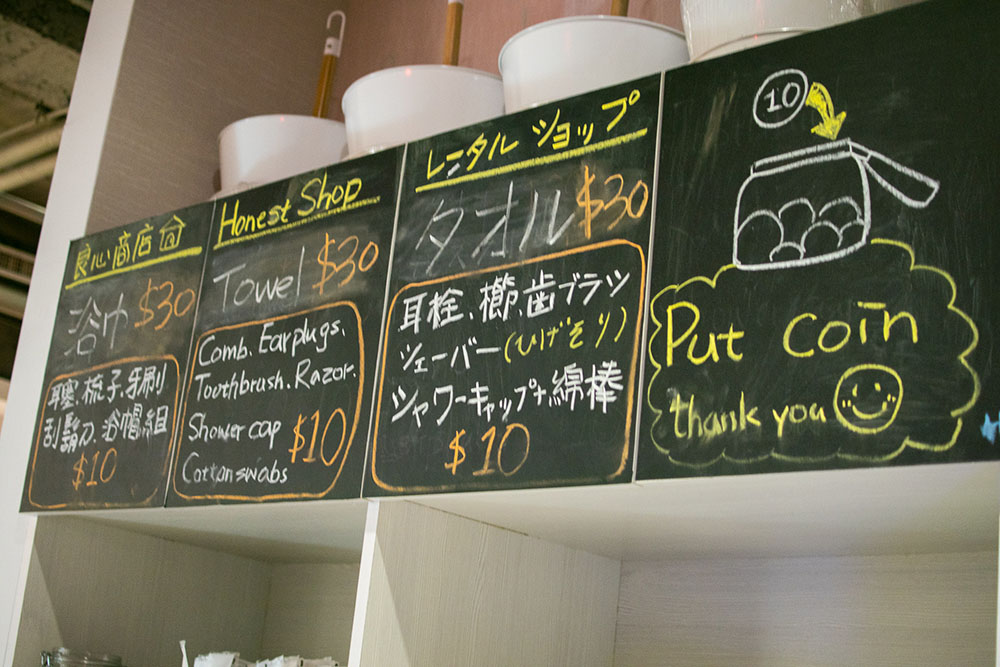 良心商店
浴巾 $30
耳塞、梳子、牙刷
刮鬍刀、浴帽組
$10
Honest Shop
Towel $30
Comb. Earplugs.
Toothbrush. Razor.
Shower cap $10
Cotton swabs
レンタル ショップ
タオル $30
耳栓、櫛、歯ブラシ
シェーバー(ひげそり)
シャワーキャップ+綿棒
$10
10
Put coin
thank you